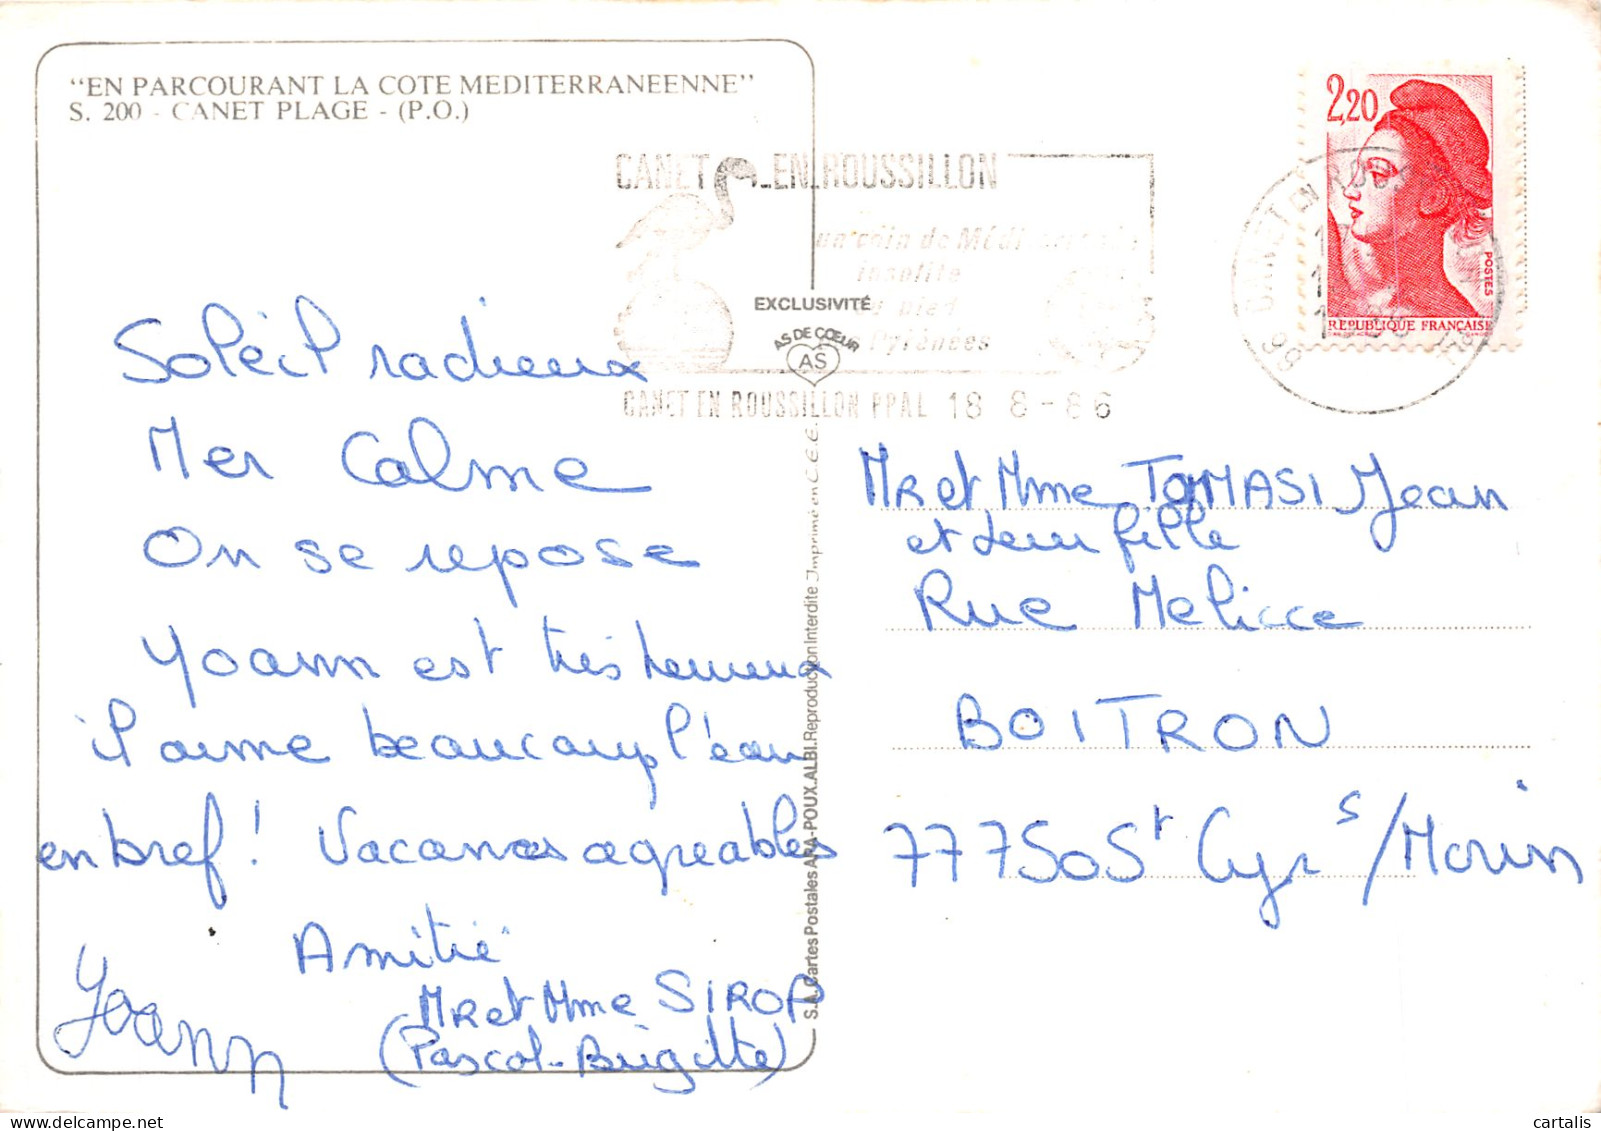 "EN PARCOURANT LA COTE MEDITERRANEENNE"
S. 200 - CANET PLAGE - (P.O.)
CANET EN ROUSSILLON
un coin de
insolite
pied
Pyrénées
CANET EN ROUSSILLON PPAL 18 8 - 86
EXCLUSIVITÉ
AS DE CŒUR
AS
2,20
POSTES
REPUBLIQUE FRANÇAISE
CANET EN
66
Soleil radieux
Mer Calme
On se repose
Yoann est très heureux
il aime beaucoup l'eau
en bref ! Vacances agreables
Amitié
Mr et Mme SIROP
(Pascal-Brigitte)
Yoann
S.A. Cartes Postales APA-POUX.ALBI.Reproduction Interdite Imprimé en C.E.E.
Mr et Mme TOMASI Jean
et leur fille
Rue Melicce
BOITRON
77750 St Cyr s/Morin
cartalis
www.delcampe.net